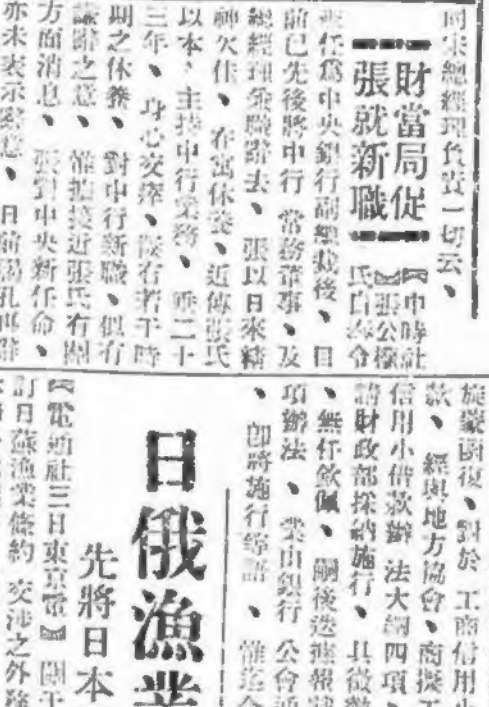 同宋總經理負責一切云、
財當局促
張就新職
【申時社】張公權氏自奉令
調任爲中央銀行副總裁後、日
前已先後將中行常務董事、及
總經理兼職辭去、張以日來精
神欠佳、在寓休養、近傳張氏
以本人主持中行業務、垂二十
三年、身心交瘁、擬有若干時
期之休養、對中行新職、似有
謙辭之意、惟據接近張氏有關
方面消息、張對中央新任命、
亦未表示辭意、日前
旋蒙函復、對於工商信用小
款、經與地方協會、商擬工
信用小借款辦法大綱四項、
請財政部採納施行、具徵
、無任欽佩、嗣後迭據報
項辦法、業由銀行公會
、即將施行等語、惟迄今
日俄漁業
先將日本
【電通社三日東京電】關于
訂日蘇漁業條約交涉之外務